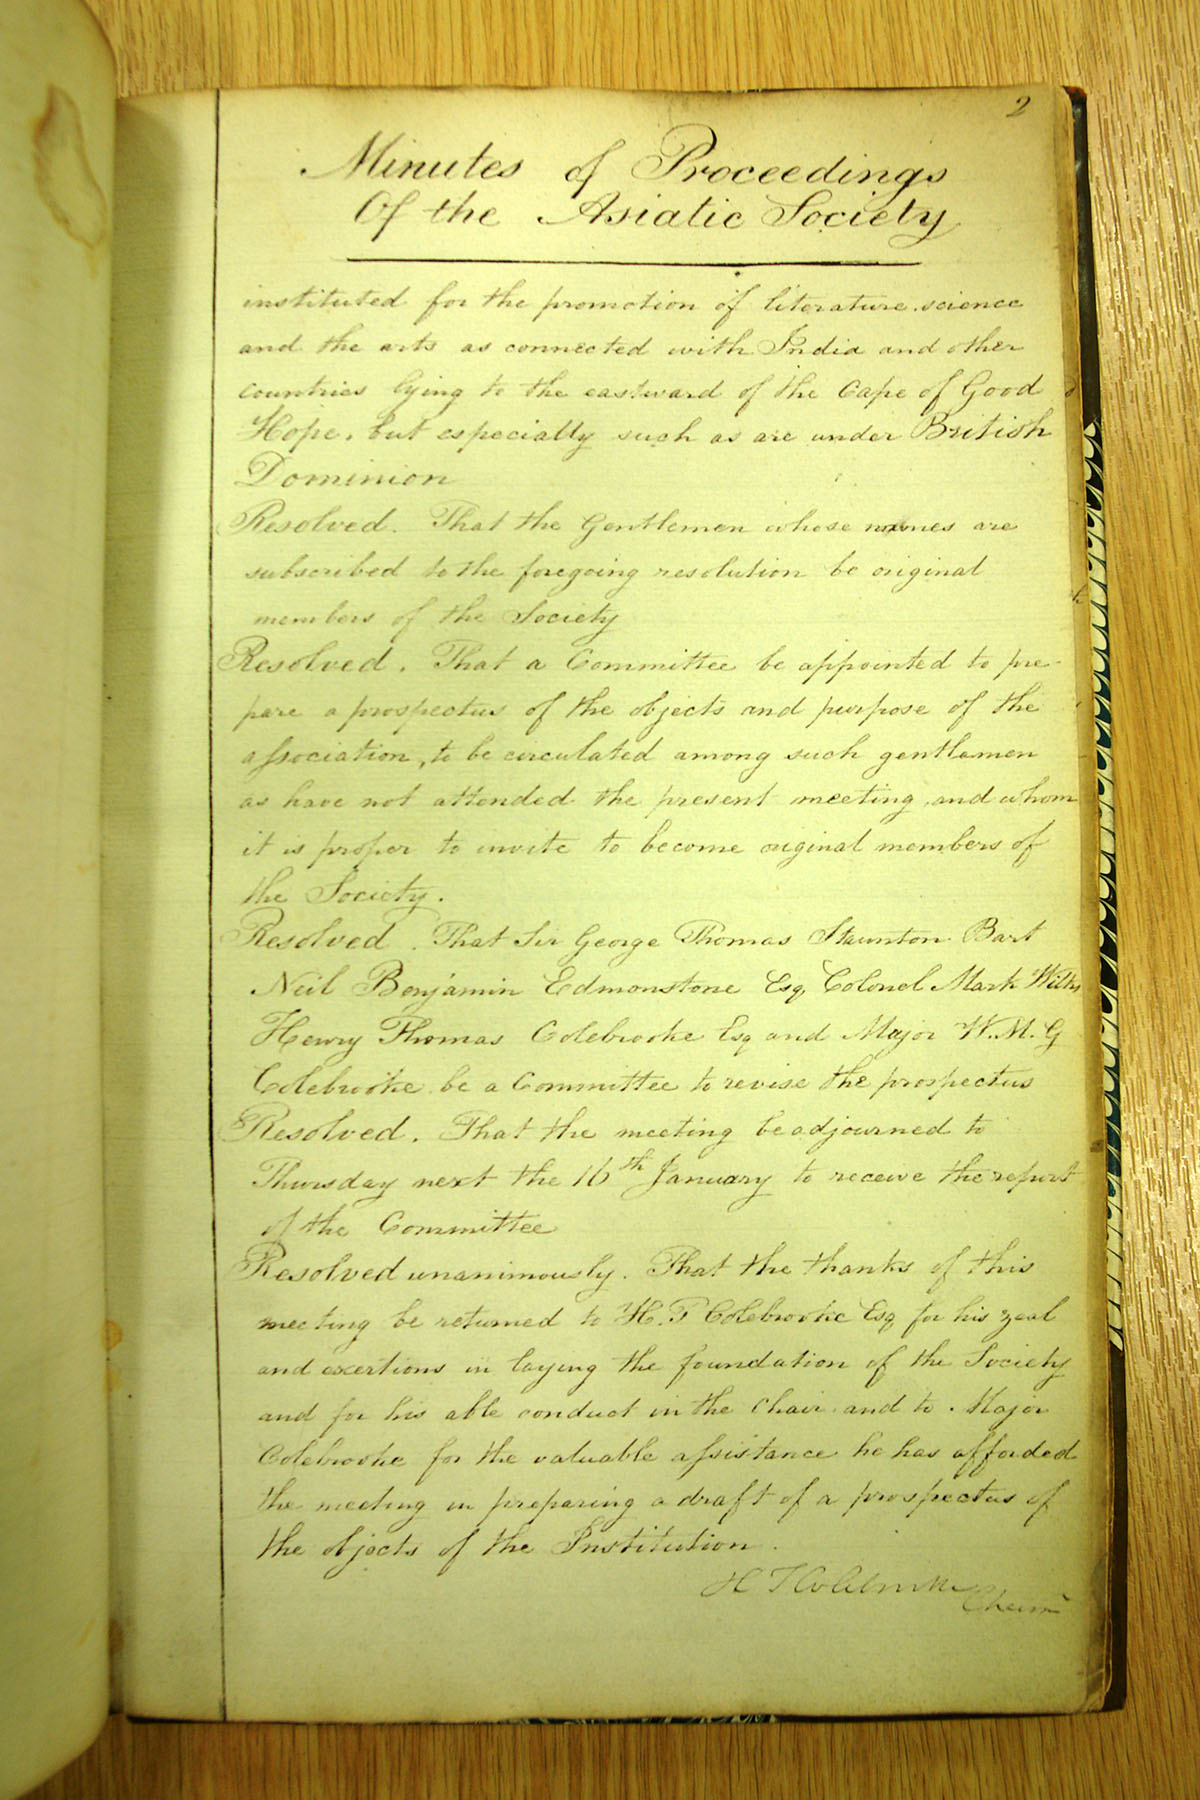 2
Minutes of Proceedings
Of the Asiatic Society
instituted for the promotion of literature, science
and the arts as connected with India and other
countries lying to the eastward of the Cape of Good
Hope, but especially such as are under British
Dominion
Resolved. That the Gentlemen whose names are
subscribed to the foregoing resolution be original
members of the Society
Resolved. That a Committee be appointed to pre-
pare a prospectus of the objects and purpose of the
association, to be circulated among such gentlemen
as have not attended the present meeting, and whom
it is proper to invite to become original members of
the Society.
Resolved. That Sir George Thomas Staunton Bart
Neil Benjamin Edmonstone Esq, Colonel Mark Wilks
Henry Thomas Colebrooke Esq and Major W. M. G
Colebrooke be a Committee to revise the prospectus
Resolved. That the meeting be adjourned to
Thursday next the 16th January to receive the report
of the Committee
Resolved unanimously. That the thanks of this
meeting be returned to H. T Colebrooke Esq for his zeal
and exertions in laying the foundation of the Society
and for his able conduct in the Chair and to Major
Colebrooke for the valuable assistance he has afforded
the meeting in preparing a draft of a prospectus of
the objects of the Institution.
H T Colebrooke
Chairn